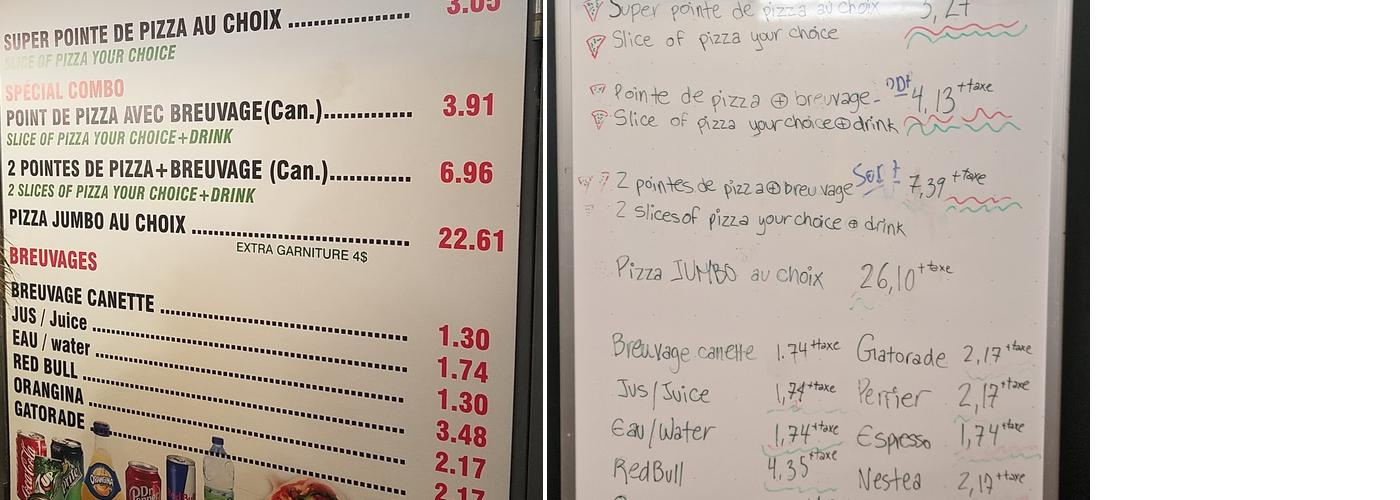 3.05
SUPER POINTE DE PIZZA AU CHOIX
SLICE OF PIZZA YOUR CHOICE
SPÉCIAL COMBO
POINT DE PIZZA AVEC BREUVAGE(Can.) 3.91
SLICE OF PIZZA YOUR CHOICE+DRINK
2 POINTES DE PIZZA+BREUVAGE (Can.) 6.96
2 SLICES OF PIZZA YOUR CHOICE+DRINK
PIZZA JUMBO AU CHOIX 22.61
EXTRA GARNITURE 4$
BREUVAGES
BREUVAGE CANETTE 1.30
JUS / Juice 1.74
EAU / water 1.30
RED BULL 3.48
ORANGINA 2.17
GATORADE 2.17
Super pointe de pizza au choix
Slice of pizza your choice
Pointe de pizza ⊕ breuvage- 4,13 +taxe
Slice of pizza your choice ⊕ drink
2 pointes de pizza ⊕ breuvage 7,39 +taxe
2 slices of pizza your choice ⊕ drink
Pizza JUMBO au choix 26,10 +taxe
Breuvage canette 1.74 +taxe Gatorade 2,17 +taxe
Jus/Juice 1,74 +taxe Perrier 2,17 +taxe
Eau/Water 1,74 +taxe Espresso 1,74 +taxe
RedBull 4,35 +taxe Nestea 2,17 +taxe